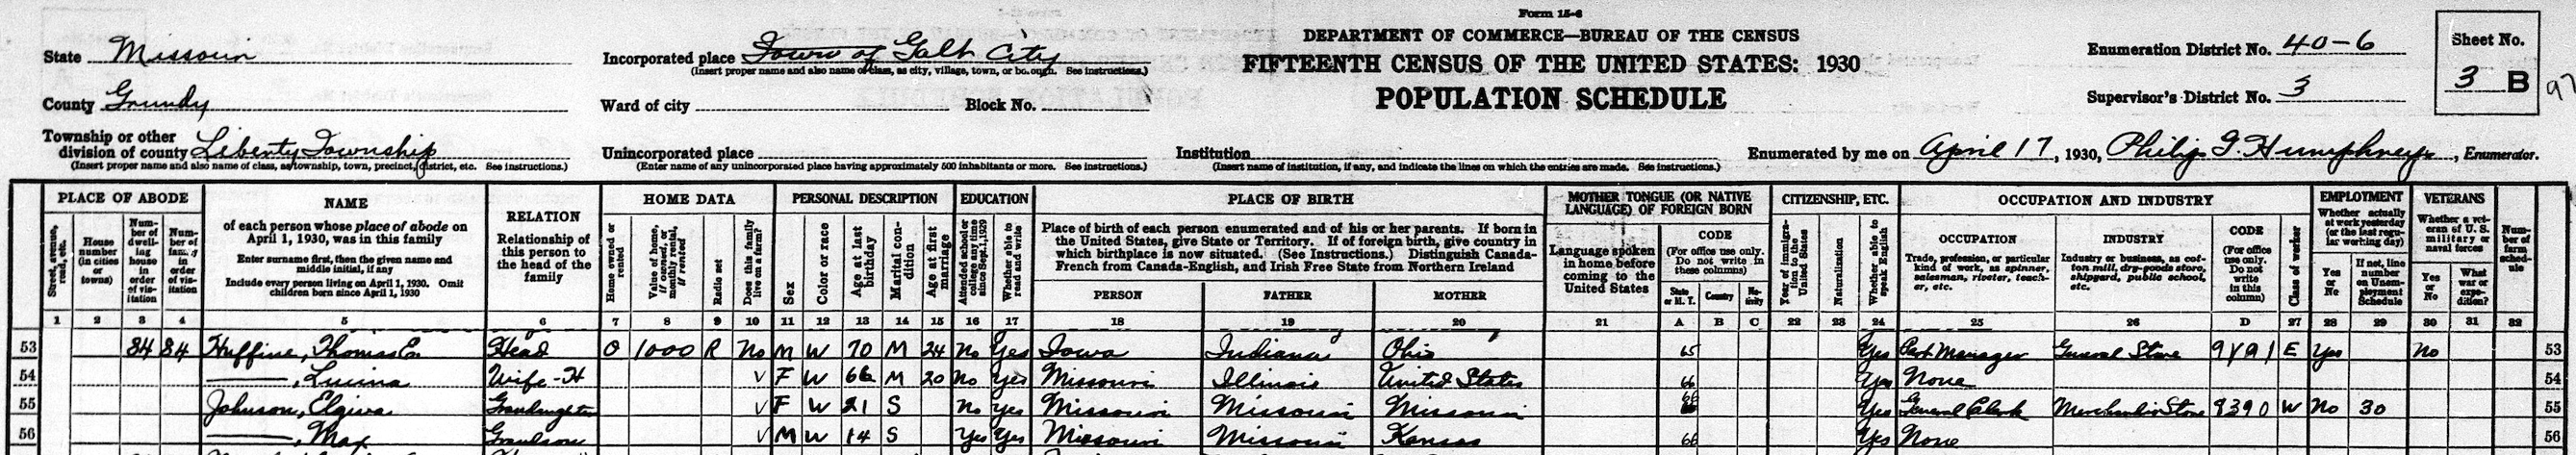 Form 15-6
DEPARTMENT OF COMMERCE—BUREAU OF THE CENSUS
FIFTEENTH CENSUS OF THE UNITED STATES: 1930
POPULATION SCHEDULE
State Missouri
Incorporated place Town of Galt City
(Insert proper name and also name of class, as city, village, town, or borough. See instructions.)
Enumeration District No. 40-6
Sheet No.
3 B
County Grundy
Ward of city
Block No.
Supervisor's District No. 3
Township or other
division of county Liberty Township
(Insert proper name and also name of class, as township, town, precinct, district, etc. See instructions.)
Unincorporated place
(Enter name of any unincorporated place having approximately 500 inhabitants or more. See instructions.)
Institution
(Insert name of institution, if any, and indicate the lines on which the entries are made. See instructions.)
Enumerated by me on April 17, 1930, Philip G. Humphreys, Enumerator.
PLACE OF ABODE
Street, avenue, road, etc.
House number (in cities or towns)
Number of dwelling house in order of visitation
Number of family in order of visitation
NAME
of each person whose place of abode on
April 1, 1930, was in this family
Enter surname first, then the given name and
middle initial, if any
Include every person living on April 1, 1930. Omit
children born since April 1, 1930
RELATION
Relationship of
this person to
the head of the
family
HOME DATA
Home owned or rented
Value of home, if owned, or monthly rental, if rented
Radio set
Does this family live on a farm?
PERSONAL DESCRIPTION
Sex
Color or race
Age at last birthday
Marital condition
Age at first marriage
EDUCATION
Attended school or college any time since Sept. 1, 1929
Whether able to read and write
PLACE OF BIRTH
Place of birth of each person enumerated and of his or her parents. If born in
the United States, give State or Territory. If of foreign birth, give country in
which birthplace is now situated. (See Instructions.) Distinguish Canada-
French from Canada-English, and Irish Free State from Northern Ireland
PERSON
FATHER
MOTHER
MOTHER TONGUE (OR NATIVE
LANGUAGE) OF FOREIGN BORN
Language spoken
in home before
coming to the
United States
CODE
(For office use only.
Do not write in
these columns)
State or M. T.
Country
Nativity
CITIZENSHIP, ETC.
Year of immigration to the United States
Naturalization
Whether able to speak English
OCCUPATION AND INDUSTRY
OCCUPATION
Trade, profession, or particular
kind of work, as spinner,
salesman, riveter, teach-
er, etc.
INDUSTRY
Industry or business, as cot-
ton mill, dry-goods store,
shipyard, public school,
etc.
CODE
(For office
use only.
Do not
write
in this
column)
Class of worker
EMPLOYMENT
Whether actually
at work yesterday
(or the last regu-
lar working day)
Yes
or
No
If not, line
number
on Unem-
ployment
Schedule
VETERANS
Whether a vet-
eran of U. S.
military or
naval forces
Yes
or
No
What
war or
expe-
dition?
Num-
ber of
farm
sched-
ule
1 2 3 4 5 6 7 8 9 10 11 12 13 14 15 16 17 18 19 20 21 A B C 22 23 24 25 26 D 27 28 29 30 31 32
53 84 84 Huffine, Thomas E. Head O 1000 R No M W 70 M 24 No Yes Iowa Indiana Ohio 65 Yes Manager General Store E Yes No 53
54 ——, Luvina Wife-H V F W 66 M 20 No Yes Missouri Illinois United States 66 Yes None 54
55 Johnson, Elgiva Grandaughter V F W 21 S No Yes Missouri Missouri Missouri 66 Yes General Clerk Store 8390 W No 30 55
56 ——, Max Grandson V M W 14 S Yes Yes Missouri Missouri Kansas 66 Yes None 56